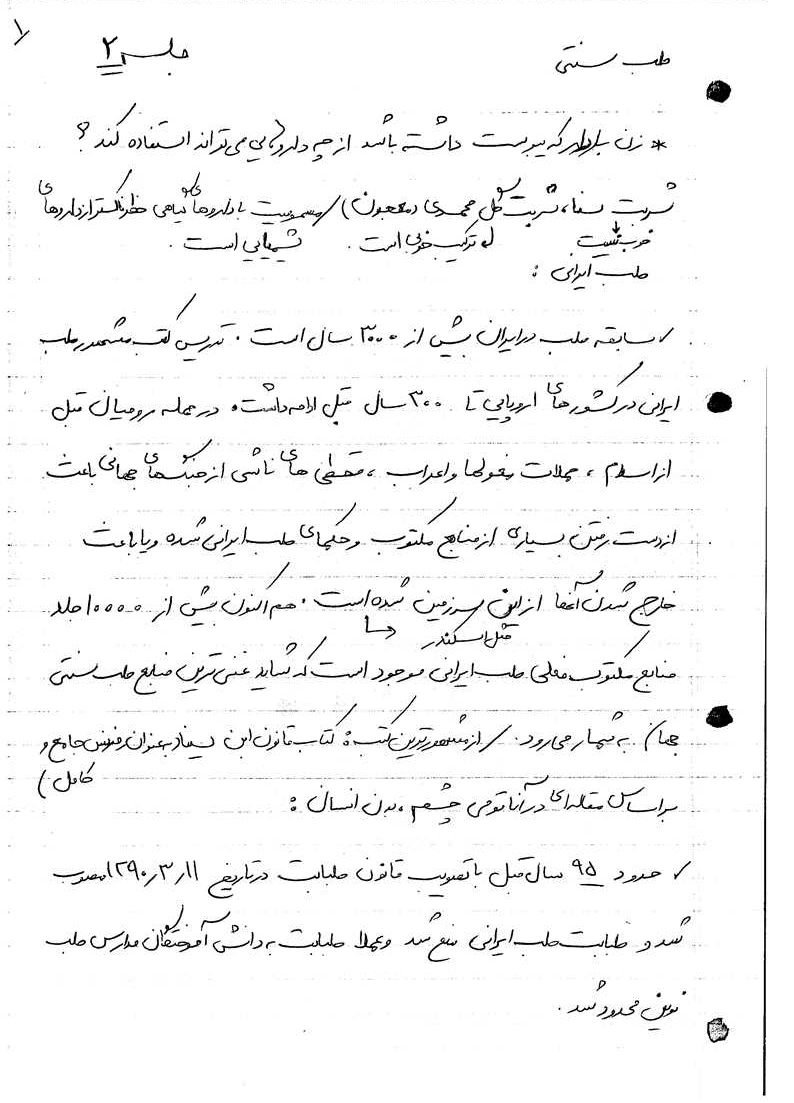 ۱
طب سنتی جلسه ۲
* زن باردار که یبوست داشته باشد از چه داروهایی می تواند استفاده کند؟
شربت سنا، شربت گل محمدی (معجون) / مسمومیت با داروهای گیاهی خطرناکتر از داروهای
خوب نیست ترکیب خوبی است. شیمیایی است.
طب ایرانی :
✓ سابقه طب در ایران بیش از ۳۰۰۰ سال است. تدریس کتب مشهور طب
ایرانی در کشورهای اروپایی تا ۳۰۰ سال قبل ادامه داشت، در حمله رومیان قبل
از اسلام، حملات مغولها و اعراب، قحطی های ناشی از جنگهای جهانی باعث
از دست رفتن بسیاری از منابع مکتوب و حکمای طب ایرانی شده و یا باعث
خارج شدن آنها از این سرزمین شده است. هم اکنون بیش از ۱۰۰۰۰ جلد
قبل اسکندر
منابع مکتوب فعلی طب ایرانی موجود است که شاید غنی ترین منابع طب سنتی
جهان به شمار می رود. / از مشهورترین کتب: کتاب قانون ابن سینا به عنوان رفرنس جامع و
کامل)
براساس مقاله ای در آناتومی چشم، بدن انسان :
✓ حدود ۹۵ سال قبل با تصویب قانون طبابت در تاریخ ۱۲۹۰/۳/۱۱ مصوب
شد و طبابت طب ایرانی منع شد و عملا طبابت به دانش آموختگان مدارس طب
نوین محدود شد.